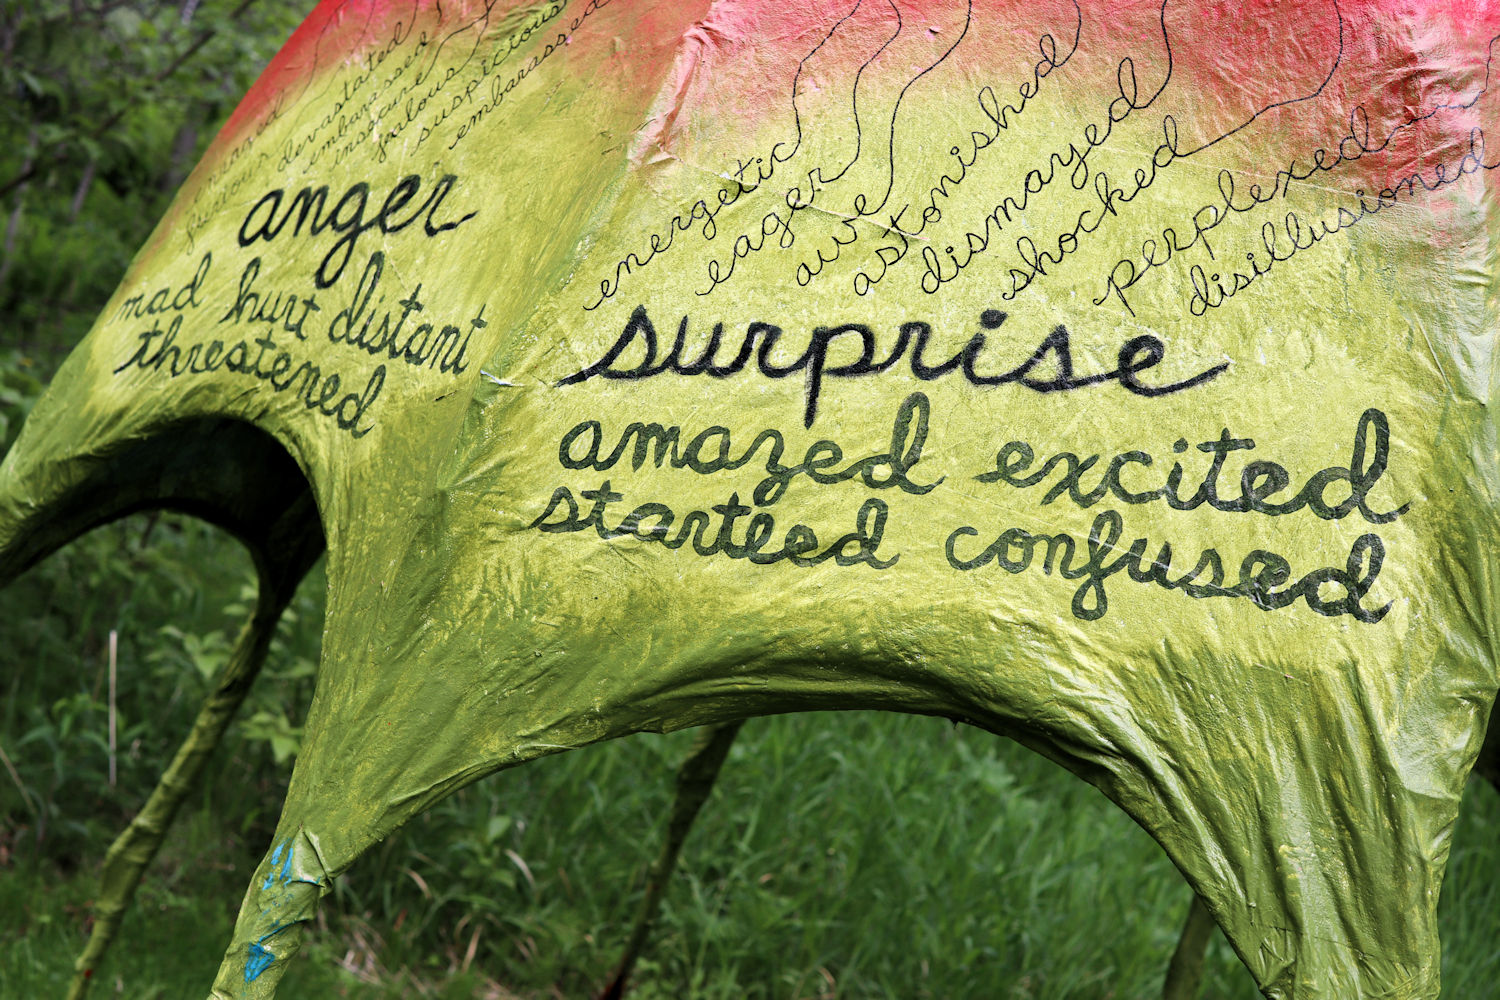 enraged
furious
devastated
embarassed
insecure
jealous
suspicious
embarassed
anger
mad hurt distant
threatened
energetic
eager
awe
astonished
dismayed
shocked
perplexed
disillusioned
surprise
amazed excited
starteled confused